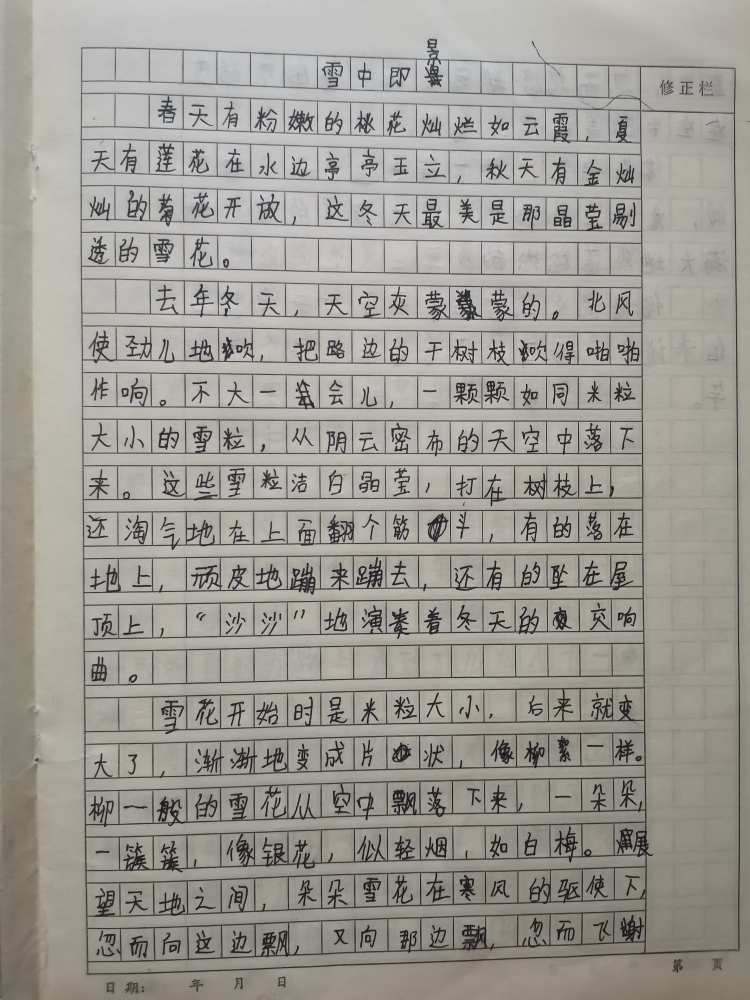 雪中即景
修正栏
春天有粉嫩的桃花灿烂如云霞，夏
天有莲花在水边亭亭玉立，秋天有金灿
灿的菊花开放，这冬天最美是那晶莹剔
透的雪花。
去年冬天，天空灰蒙蒙的。北风
使劲儿地吹，把路边的干树枝吹得啪啪
作响。不大一会儿，一颗颗如同米粒
大小的雪粒，从阴云密布的天空中落下
来。这些雪粒洁白晶莹，打在树枝上，
还淘气地在上面翻个筋斗，有的落在
地上，顽皮地蹦来蹦去，还有的坠在屋
顶上，“沙沙”地演奏着冬天的交响
曲。
雪花开始时是米粒大小，后来就变
大了，渐渐地变成片状，像柳絮一样。
柳一般的雪花从空中飘落下来，一朵朵，
一簇簇，像银花，似轻烟，如白梅。展
望天地之间，朵朵雪花在寒风的驱使下，
忽而向这边飘，又向那边飘，忽而飞
第 页
日期： 年 月 日